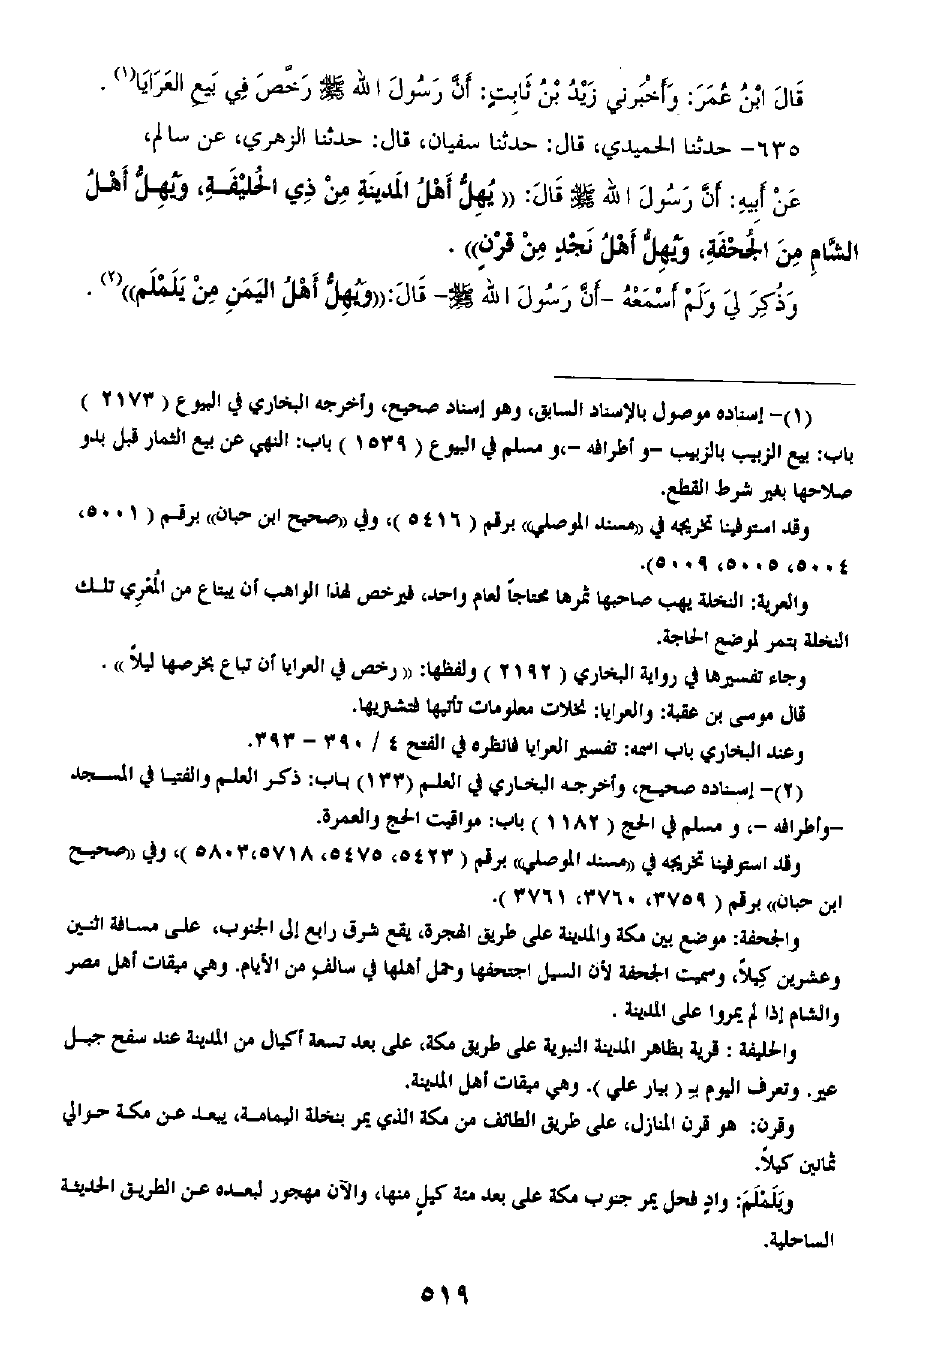 قَالَ ابْنُ عُمَرَ: وَأَخْبَرني زَيْدُ بْنُ ثَابِتٍ: أَنَّ رَسُولَ الله ﷺ رَخَّصَ فِي بَيَعِ العَرَايَا(١).
٦٣٥- حدثنا الحميدي، قال: حدثنا سفيان، قال: حدثنا الزهري، عن سالم،
عَنْ أَبِيهِ: أَنَّ رَسُولَ الله ﷺ قَالَ: (( يُهِلُّ أَهْلُ المَدِينَةِ مِنْ ذِي الحُلَيْفَةِ، وَيُهِلُّ أَهْلُ
الشَّامِ مِنَ الجُحْفَةِ، وَيُهِلُّ أَهْلُ نَجْدٍ مِنْ قَرْنٍ)) .
وَذُكِرَ لِيَ وَلَمْ أَسْمَعْهُ -أَنَّ رَسُولَ الله ﷺ- قَالَ:((وَيُهِلُّ أَهْلُ اليَمَنِ مِنْ يَلَمْلَم))(٢) .
(١)- إسناده موصول بالإسناد السابق، وهو إسناد صحيح، وأخرجه البخاري في البيوع ( ٢١٧٣ )
باب: بيع الزبيب بالزبيب -و أطرافه -،و مسلم في البيوع ( ١٥٣٩ ) باب: النهي عن بيع الثمار قبل بدو
صلاحها بغير شرط القطع.
وقد استوفينا تخريجه في ((مسند الموصلي)) برقم ( ٥٤١٦ )، وفي ((صحيح ابن حبان)) برقم ( ٥٠٠١،
٥٠٠٤، ٥٠٠٥، ٥٠٠٩).
والعرية: النخلة يهب صاحبها ثمرها محتاجاً لعام واحد، فيرخص لهذا الواهب أن يبتاع من المُعْرِي تلك
النخلة بتمر لموضع الحاجة.
وجاء تفسيرها في رواية البخاري ( ٢١٩٢ ) ولفظها: (( رخص في العرايا أن تباع بخرصها ليلاً )) .
قال موسى بن عقبة: والعرايا: نخلات معلومات تأتيها فتشتريها.
وعند البخاري باب اسمه: تفسير العرايا فانظره في الفتح ٤ / ٣٩٠ - ٣٩٣.
(٢)- إسناده صحيح، وأخرجه البخاري في العلم (١٣٣) باب: ذكر العلم والفتيا في المسجد
-وأطرافه -، و مسلم في الحج ( ١١٨٢ ) باب: مواقيت الحج والعمرة.
وقد استوفينا تخريجه في ((مسند الموصلي)) برقم ( ٥٤٢٣، ٥٤٧٥، ٥٧١٨،٥٨٠٣ )، وفي ((صحيح
ابن حبان)) برقم ( ٣٧٥٩، ٣٧٦٠، ٣٧٦١ ).
والجحفة: موضع بين مكة والمدينة على طريق الهجرة، يقع شرق رابع إلى الجنوب، على مسافة اثنين
وعشرين كِيلاً، وسميت الجحفة لأن السيل اجتحفها وحمل أهلها في سالفٍ من الأيام. وهي ميقات أهل مصر
والشام إذا لم يمروا على المدينة .
والحليفة : قرية بظاهر المدينة النبوية على طريق مكة، على بعد تسعة أكيال من المدينة عند سفح جبل
عير. وتعرف اليوم بـ ( بيار علي ). وهي ميقات أهل المدينة.
وقرن: هو قرن المنازل، على طريق الطائف من مكة الذي يمر بنخلة اليمامة، يبعد عن مكة حوالي
ثمانين كيلاً.
ويَلَمْلَمَ: وادٍ فحل يمر جنوب مكة على بعد مئة كيلٍ منها، والآن مهجور لبعده عن الطريق الحديثة
الساحلية.
٥١٩